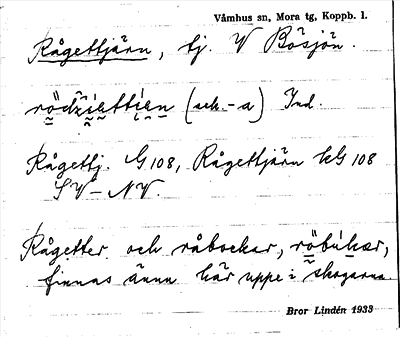 Våmhus sn, Mora tg, Koppb. l.
Rågettjärn, tj. V Bösjön.
rödziettien (ack. -a) Ind.
Rågettj. G 108, Rågettjärn kG 108
SV - NV.
Rågetter och råbockar, röbúkær,
finnas ännu här uppe i skogarna
Bror Lindén 1933